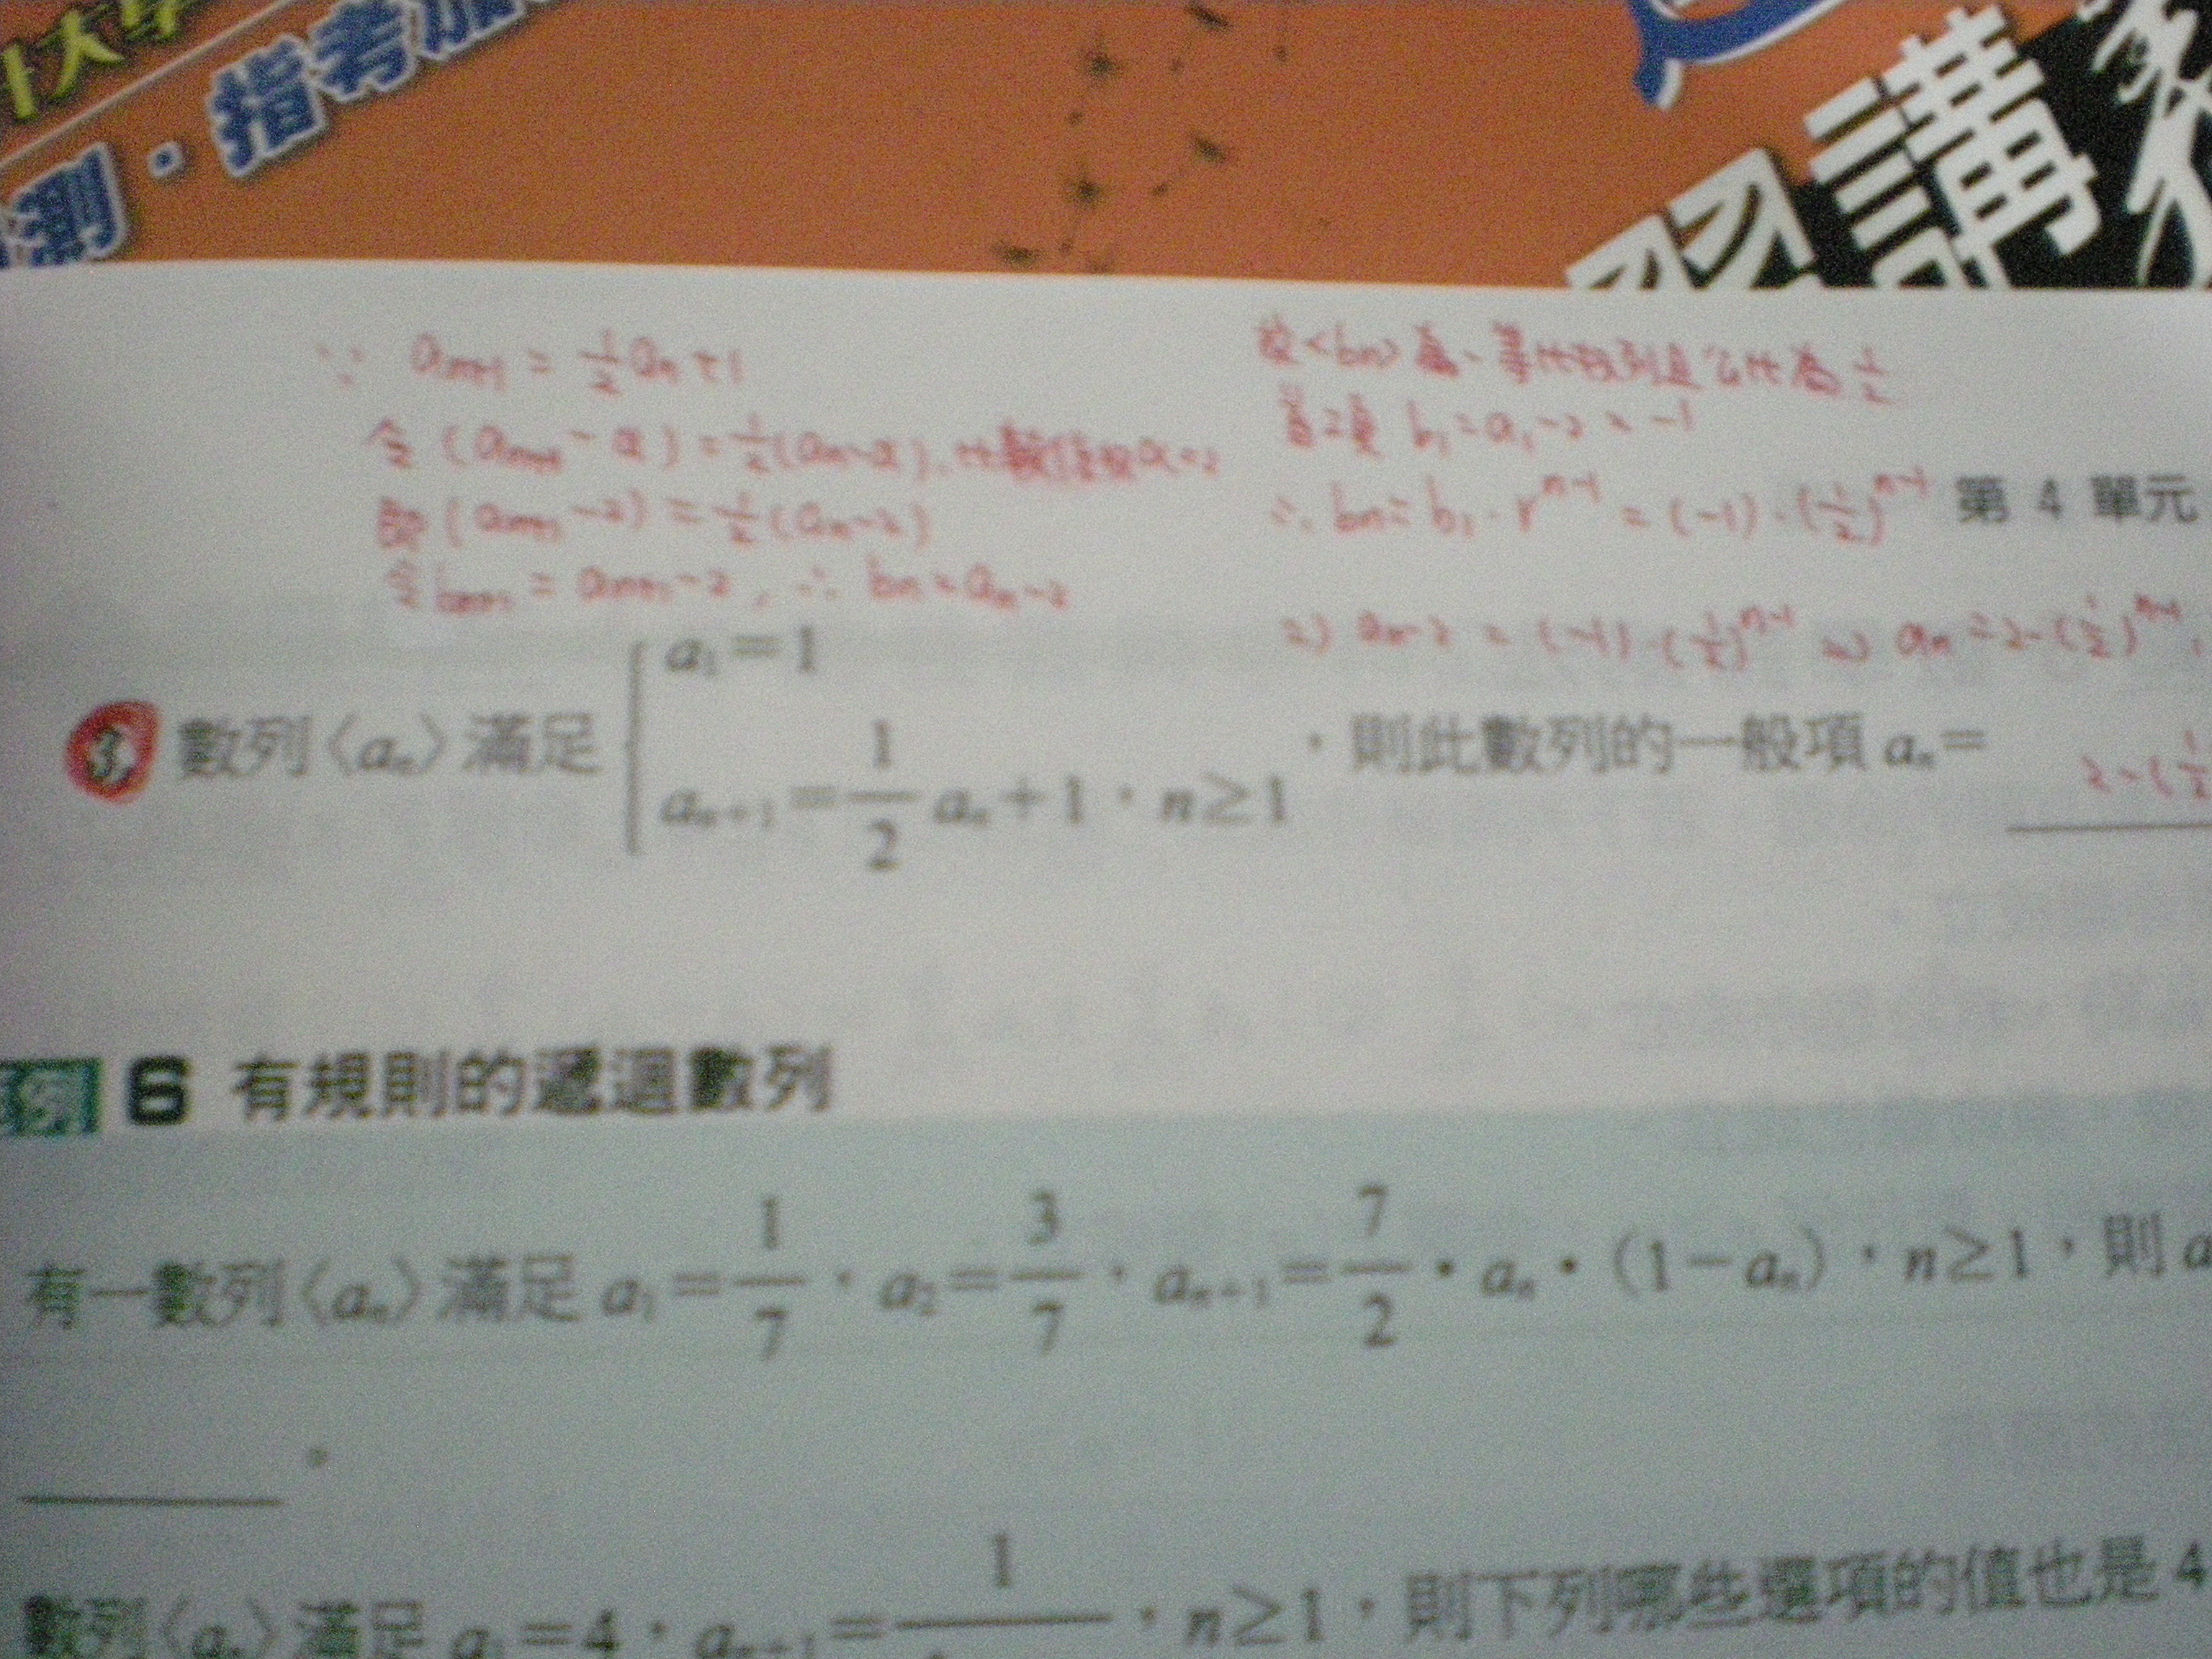 測・指考
講
∵ an+1 = 1/2 an + 1
令 (an+1 - α) = 1/2 (an - α), 比較係數 α = 2
即 (an+1 - 2) = 1/2 (an - 2)
令 bn+1 = an+1 - 2, ∴ bn = an - 2
故<bn>為一等比數列且公比為 1/2
首項 b1 = a1 - 2 = -1
∴ bn = b1 · r^n-1 = (-1) · (1/2)^n-1
第 4 單元
⇒ an - 2 = (-1) · (1/2)^n-1 ⇒ an = 2 - (1/2)^n-1
3. 數列〈an〉滿足 { a1 = 1
an+1 = 1/2 an + 1,n ≥ 1 ,則此數列的一般項 an = 2 - (1/2
6 有規則的遞迴數列
有一數列〈an〉滿足 a1 = 1/7,a2 = 3/7,an+1 = 7/2 • an • (1 - an),n ≥ 1,則 a
。
數列〈an〉滿足 a1 = 4,an+1 = 1,n ≥ 1,則下列哪些選項的值也是 4